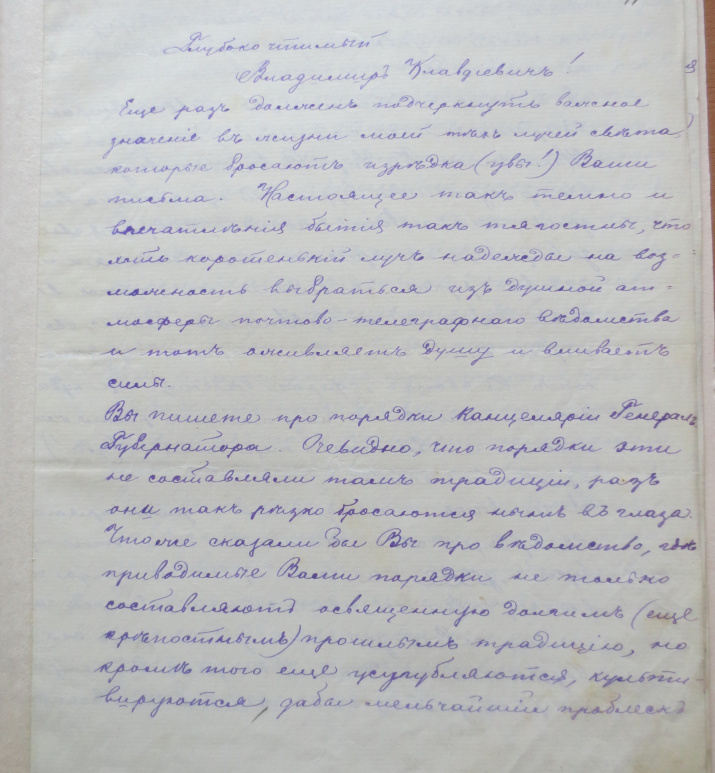 Глубокочтимый
Владимиръ Клавдіевичъ!
Еще разъ долженъ подчеркнуть важное
значеніе въ жизни моей тѣхъ лучей свѣта,
которые бросаютъ изрѣдка (увы!) Ваши
письма. Настоящее такъ темно и
впечатлѣнія бытія такъ тягостны, что
хоть коротенькій лучъ надежды на воз-
можность выбраться изъ душной ат-
мосферы почтово-телеграфнаго вѣдомства
и тотъ оживляетъ душу и вливаетъ
силы.
Вы пишете про порядки Канцеляріи Генералъ
Губернатора. Очевидно, что порядки эти
не составляли тамъ традиціи, разъ
они такъ рѣзко бросаются нынѣ въ глаза.
Что же сказали бы Вы про вѣдомство, гдѣ
приводимые Вами порядки не только
составляютъ освященную долгимъ (еще
крѣпостнымъ) прошлымъ традицію, но
кромѣ того еще усугубляются, культи-
вируются, дабы мельчайшій проблескъ